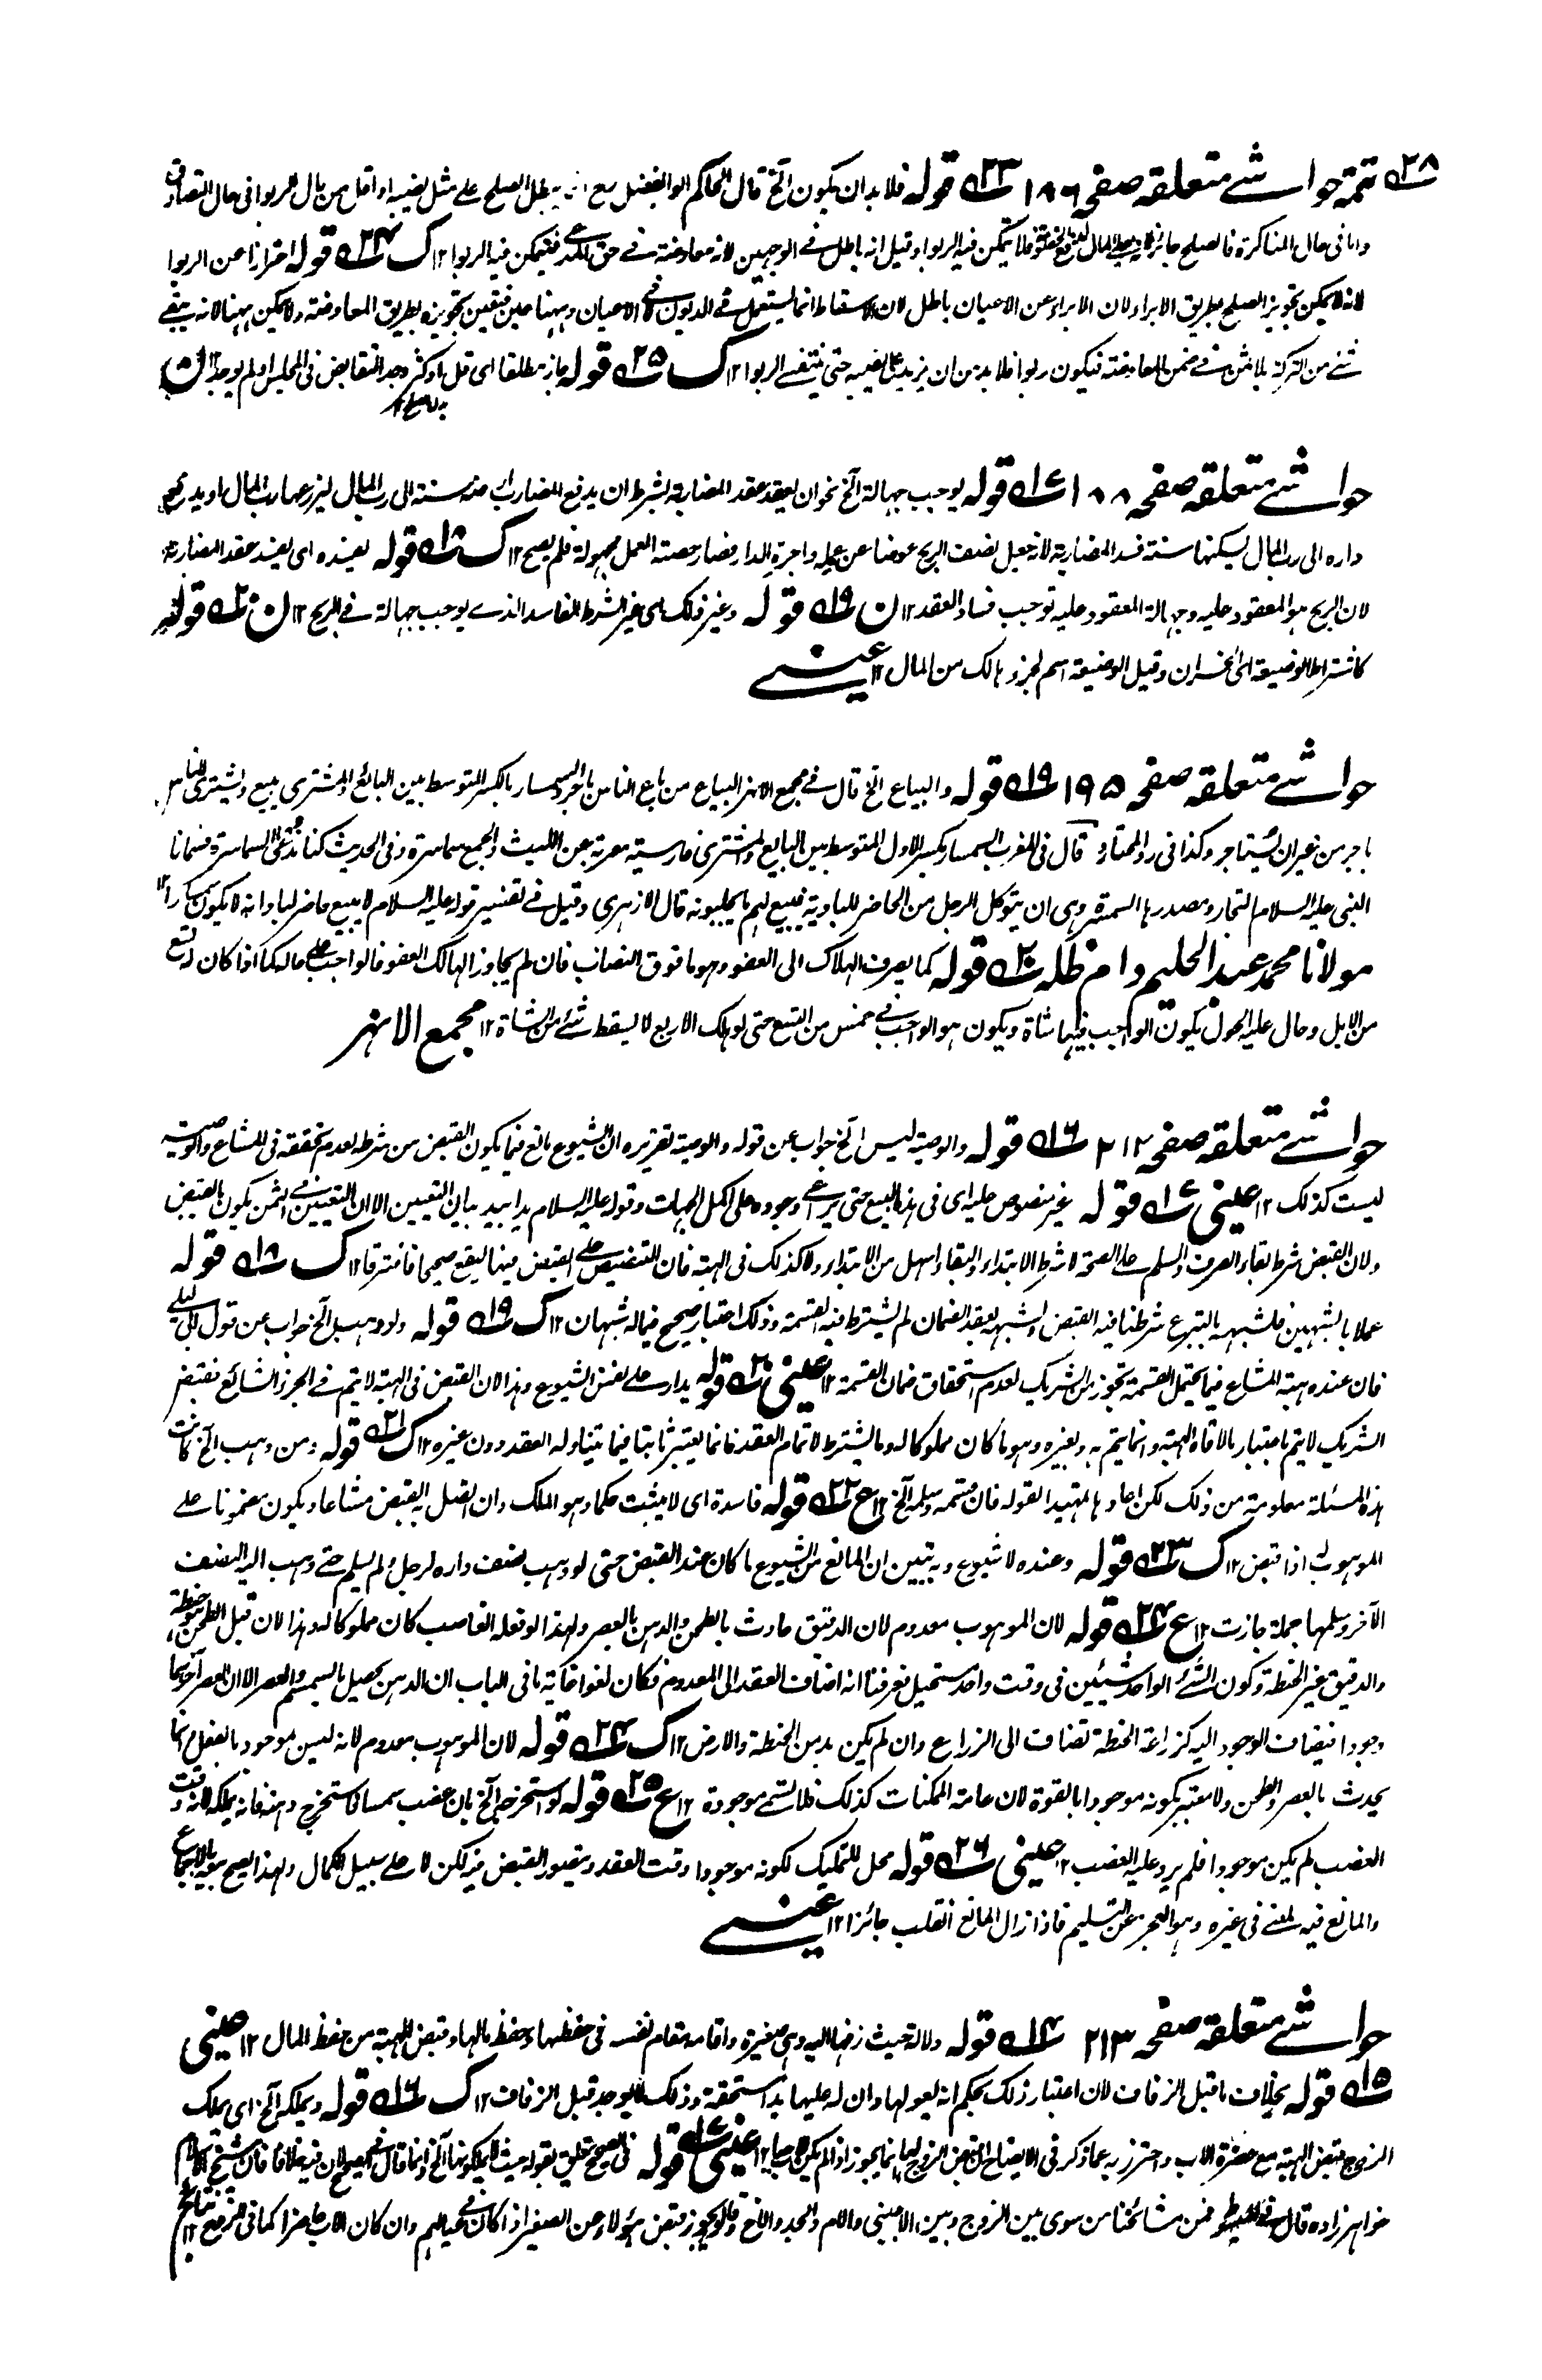 تتمة حواشے متعلقہ صفحہ ١٨٦ ٢٣ قوله فلا بد ان يكون الخ قال الحاكم ابو الفضل يبطل الصلح على مثل نصيبه او اقل من مال الربوا فى حال التصادق
واما فى حال المناكرة فالصلح جائز فلا يتمكن فيه الربوا وقيل انه باطل فے الوجهين لانه معاوضة فے حق المدعے فيتمكن فيه الربوا ١٢ ك ٢٤ قوله احترازا عن الربوا
لانه لا يمكن تجويز الصلح بطريق الابراء لان الابراء عن الاعيان باطل لان الاسقاط انما يستعمل فے الديون لا فے الاعيان وههنا عين فتعين تجويزه بطريق المعاوضة ولا يمكن ههنا لانه يبقے
شئے من التركة بلا ثمن فے ضمن المعاوضة فيكون ربوا فلا بد من ان يزيد على نصيبه حتى ينتفے الربوا ١٢ ك ٢٥ قوله جاز مطلقا اى قل او كثر وجد التقابض فى المجلس او لم يوجد ١٢
حواشے متعلقہ صفحہ ١٨٨ ١٧ قوله يوجب جهالة الخ نحو ان يعقد عقد المضاربة بشرط ان يدفع المضارب ارضه سنة الى رب المال ليزرعها رب المال او يدفع
داره الى رب المال ليسكنها سنة فسد المضاربة لانه جعل نصف الربح عوضا عن عمله واجرة الدار فصار حصة العمل مجهولة فلم يصح ١٢ ك ١٨ قوله يفسده اى يفسد عقد المضاربة
لان الربح هو المعقود عليه وجهالة المعقود عليه توجب فساد العقد ١٢ ن ١٩ قوله وغير ذلك اى غير الشرط الفاسد الذے يوجب جهالة فے الربح ١٢ ن ٢٠ قوله
كاشتراط الوضيعة اى الخسران وقيل الوضيعة اسم لجزء هالك من المال ١٢ عينے
حواشے متعلقہ صفحہ ١٩٥ ١٩ قوله والبياع الخ قال فے مجمع الانهر البياع من باع الناس باجر والسمسار بالكسر المتوسط بين البائع والمشترى يبيع ويشترى للناس
باجر من غير ان يستاجر وكذا فى رد المحتار وقال فى المغرب السمسار بكسر الاول المتوسط بين البايع والمشترى فارسية معربة عن الليث والجمع سماسرة وفى الحديث كنا ندعى السماسرة فسمانا
النبى عليه السلام التجار ومصدرها السمسرة وهى ان يتوكل الرجل من الحاضر للبادية فيبيع لهم ما يجلبونه قال الازهرى وقيل فے تفسير قوله عليه السلام لا يبيع حاضر لباد انه لا يكون سمسارا ١٢
مولانا محمد عبد الحليم دام ظله ٢٠ قوله كما يصرف الهلاك الى العفو وهو ما فوق النصاب فان لم يجاوز الهالك العفو فالواجب على حاله كما اذا كان له تسع
من الابل وحال عليه الحول يكون الواجب فيها شاة ويكون هو الواجب فے خمس من التسع حتى لو هلك الاربع لا يسقط شئے من الشاة ١٢ مجمع الانهر
حواشے متعلقہ صفحہ ٢١٢ ١٦ قوله والوصية ليس الخ جواب عن قوله والوصية تقريره ان الشيوع مانع فيما يكون القبض من شرطه لعدم تحققه فى المشاع والوصية
ليست كذلك ١٢ عينى ١٧ قوله غير منصوص عليه اى فى هذا البيع حتى يراعے وجوده على اكمل الجهات وقوله عليه السلام يدا بيد بيان التعيين الا ان التعيين فے الثمن يكون بالقبض
ولان القبض شرط بقاء الصرف والسلم على الصحة لا شرط الابتداء والبقاء اسهل من الابتداء ولا كذلك فى الهبة فان التنصيص على القبض فيها ليقع صحيحا فافترقا ١٢ ك ١٨ قوله
عملا بالشبهين فلشبهه بالتبرع شرطنا فيه القبض ولشبهه بعقد الضمان لم يشترط فيه القسمة وذلك اعتبار صحيح فيما له شبهان ١٢ ك ١٩ قوله ولو وهب الخ جواب عن قول ابن ابى ليلے
فان عنده هبة المشاع فيما يحتمل القسمة تجوز من الشريك لعدم استحقاق ضمان القسمة ١٢ عينى ٢٠ قوله يدار على نفس الشيوع وهذا لان القبض فى الهبة لا يتم فے الجزء الشائع فقبض
الشريك لا يتم باعتبار ما لاقاه الهبة وانما يتم به وبغيره وهو ما كان مملوكا له وما يشترط لاتمام العقد فانما يعتبر ثابتا فيما يتناوله العقد دون غيره ١٢ ك ٢١ قوله ومن وهب الخ كانت
هذه المسئلة معلومة من ذلك لكن اعادها تمهيدا لقوله فان قسمه وسلمه الخ ١٢ ع ٢٢ قوله فاسدة اى لا يثبت حكما وهو الملك وان اتصل به القبض مشاعا ويكون مضمونا على
الموهوب له اذا قبض ١٢ ك ٢٣ قوله وعنده لا شيوع وبه تبين ان المانع من الشيوع ما كان عند القبض حتى لو وهب نصف داره لرجل ولم يسلم حتے وهب اليه النصف
الآخر وسلمها جملة جازت ١٢ ع ٢٤ قوله لان الموهوب معدوم لان الدقيق حادث بالطحن والدهن بالعصر ولهذا لو فعله الغاصب كان مملوكا له وهذا لان قبل الطحن هو حنطة
والدقيق غير الحنطة وكون الشئے الواحد شيئين فى وقت واحد مستحيل فعرفنا انه اضاف العقد الى المعدوم فكان لغوا غاية ما فى الباب ان الدهن يحصل بالسمسم والعصر الا ان العصر آخرهما
وجودا فيضاف الوجود اليه كزراعة الحنطة تضاف الى الزراع وان لم يكن بد من الحنطة والارض ١٢ ك ٢٤ قوله لان الموهوب معدوم لانه ليس موجود بالفعل انما
يحدث بالعصر والطحن ولا معتبر بكونه موجودا بالقوة لان عامة الممكنات كذلك فلا تسمے موجودة ١٢ ع ٢٥ قوله لو استخرجه الخ بان غصب سمسما فاستخرج دهنه فانه يملكه لانه وقت
الغصب لم يكن موجودا فلم يرد عليه الغصب ١٢ عينى ٢٦ قوله محل للتمليك لكونه موجودا وقت العقد ويتصور القبض فيه لكن لا على سبيل الكمال ولهذا يصح بيعه بالاجماع
والمانع فيه لمعنے فى غيره وهو العجز عن التسليم فاذا زال المانع انقلب جائزا ١٢ عينے
حواشے متعلقہ صفحہ ٢١٣ ١٤ قوله دلالة حيث زفها اليه وهى صغيرة واقامه مقام نفسه فى حفظها وحفظ مالها وقبض الهبة من حفظ المال ١٢ عينى
١٥ قوله بخلاف ما قبل الزفاف لان اعتبار ذلك بحكم انه يعولها وان له عليها يدا مستحقة وذلك لا يوجد قبل الزفاف ١٢ ك ١٦ قوله ويملكه الخ اى يملك
الزوج قبض الهبة مع حضرة الاب واحترز به عما ذكر فى الايضاح ان قبض الزوج لها انما يجوز اذا لم يكن الاب حيا ١٢ عينى ١٧ قوله فى الصحيح تعلق بقوله حيث يملكونها الخ وانما قال فى الصحيح لان فيه خلافا فان شيخ الاسلام
خواهر زاده قال فے المبسوط فمن مشائخنا من سوى بين الزوج وبين الاجنبى والام والجد والاخ وقالوا يجوز قبض هؤلاء عن الصغير اذا كان فى عيالهم وان كان الاب حاضرا كما فى الزوج ١٢